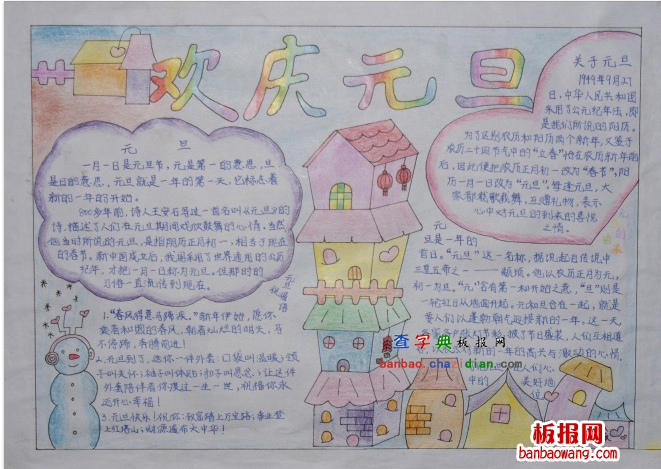 欢庆元旦
元 旦
一月一日是元旦节,元是第一的意思,旦
是日的意思,元旦就是一年的第一天,它标志着
新的一年的开始。
800多年前,诗人王安石写过一首名叫《元旦》的
诗,描述了人们在元旦期间
的心情。当然
当时所说的元旦,是指阴历正月初一,相当于现在
的春节。新中国成立后,我国采用了世界通用的公元
纪年,才把一月一日称为元旦。但那时的
习俗一直流传到现在。
元旦祝福语
1."春风得意马蹄疾。"新年伊始,愿你
乘着和煦的春风,朝着灿烂的明天,马
不停蹄,奔腾前进!
2.元旦到了,送你一件外套:口袋叫温暖;领
子叫关怀;袖子叫体贴;扣子叫思念;让这件
外套陪伴着你度过一生一世,祝福你永
远开心幸福!
3.元旦快乐!祝你:致富踏上万宝路;事业登
上红塔山;财源遍布大中华!
关于元旦
1949年9月27
日,中华人民共和国
采用了公元纪年法,即
是我们所说的阳历。
为了区别农历和阳历两个新年,又鉴于
农历二十四节气中的"立春"恰在农历新年前
后,因此便把农历正月初一改为"春节",阳
历一月一日改为"元旦"。每逢元旦,大
家都载歌载舞,互赠礼物,表示
心中对元旦的到来的喜悦
之情。
元
旦是一年的
首日。"元旦"这一名称,据说起自传说中
三皇五帝之一——颛顼。他以农历正月为元,
初一为旦。"元"有第一和开始之意,"旦"则是
一轮红日从地面升起。元和旦合在一起,就是
要人们以蓬勃朝气迎接新的一年。这一天
披了节日盛装,人们互相道
新的一年的高兴与激动的心情
人们心
中的
美好地
位
查字典板报网
banbao.chazidian.com
板报网
banbaowang.com